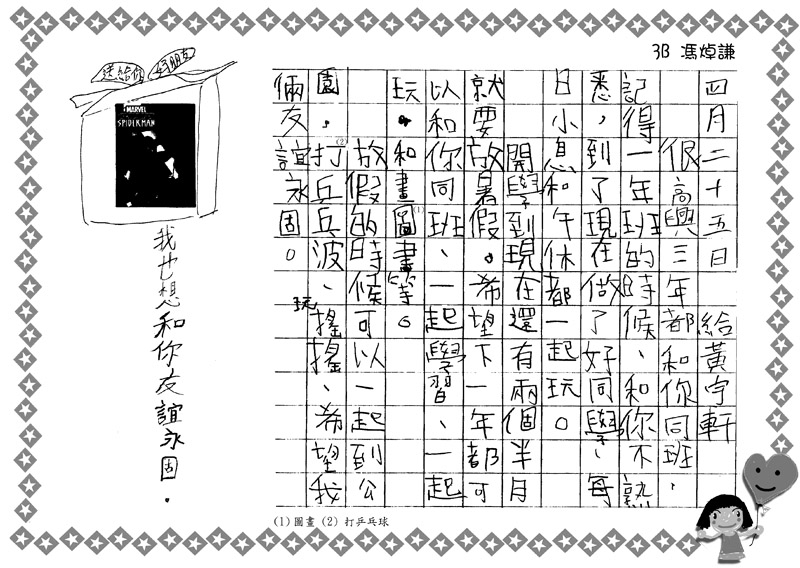 3B 馮焯謙
四月二十五日 給黃宇軒
很高興三年都和你同班,
記得一年班的時候、和你不熟
悉,到了現在做了好同學、每
日小息和午休都一起玩。
開學到現在還有兩個半月
就要放暑假。希望下一年都可
以和你同班、一起學習、一起
玩。和畫圖(1)畫等。
放假的時候可以一起到公
園,打(2)乒乓波、玩搖搖、希望我
倆友誼永固。
(1)圖畫 (2) 打乒乓球
送給你
好朋友
MARVEL
SPIDERMAN
我也想和你友誼永固.